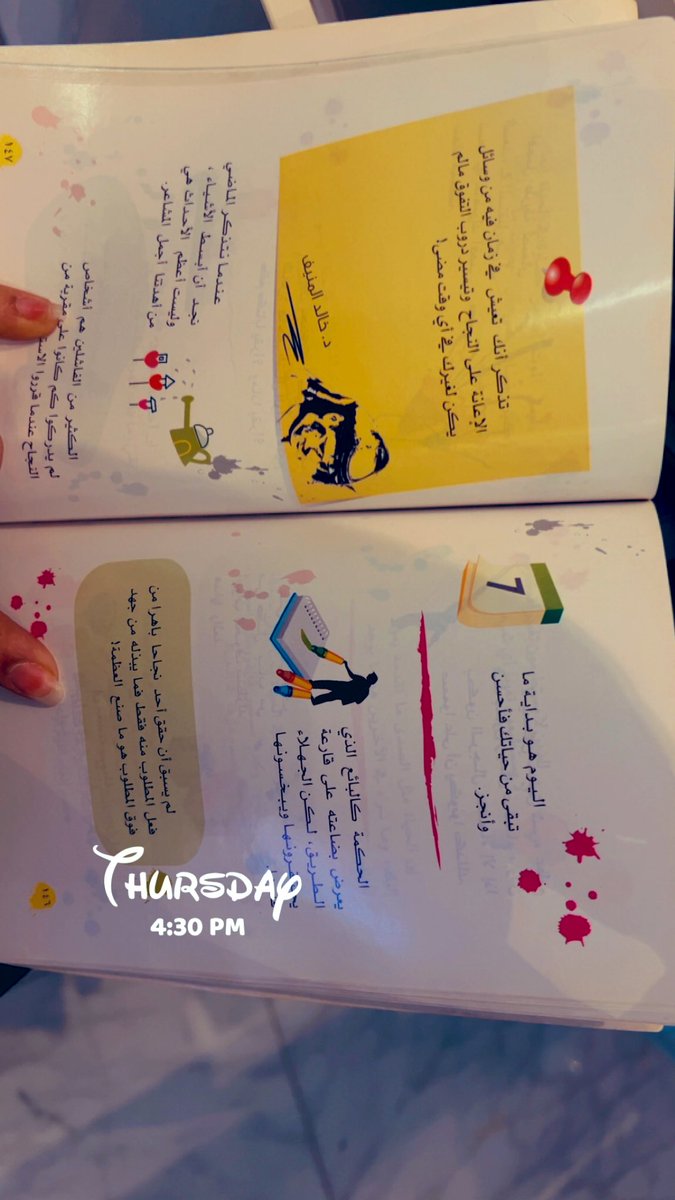 7
اليوم هو بداية ما
تبقى من حياتك فأحسن
وأنجز.
الحكمة كالبائع الذي
يعرض بضاعته على قارعة
الطريق، لكن الجهلاء
ويبخسونها
لم يسبق أن حقق أحد نجاحا باهرا من
فعل المطلوب منه فقط فما يبذله من جهد
فوق المطلوب هو ما صنع العظمة!
١٤٦
تذكر أنك تعيش في زمان فيه من وسائل
الإعانة على النجاح وتيسير دروب التفوق مالم
يكن لغيرك في أي وقت مضى!
د. خالد المنيف
عندما نتذكر الماضي
نجد أن أبسط الأشياء ،
وليست أعظم الأحداث هي
من أهدتنا أجمل المشاعر.
الكثير من الفاشلين هم أشخاص
لم يدركوا كم كانوا على مقربة من
النجاح عندما قرروا
١٤٧
THURSDAY
4:30 PM